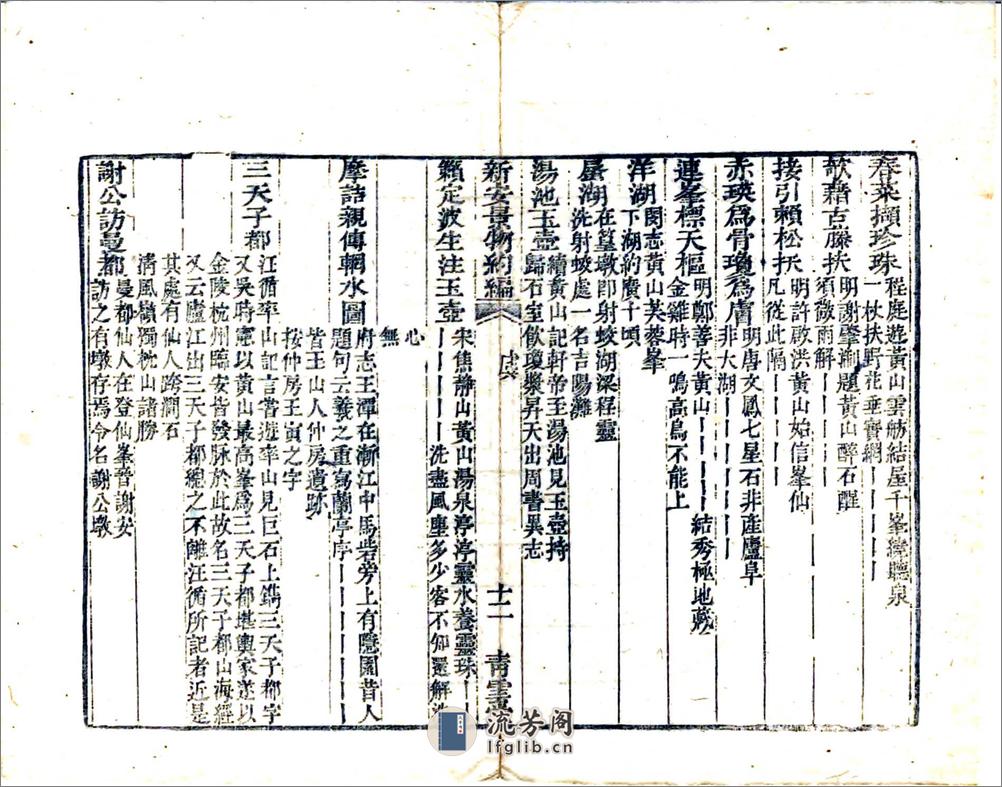 春菜擷珍珠 程庭遊黃山雲舫結屋千峯灣聽泉
一杖扶野花垂寶網｜｜｜｜｜
欹藉古藤扶 明謝肇淛題黃山醉石醒
須敬雨解｜｜｜｜｜
接引賴松扶 明許啟洪黃山始信峯仙
凡從此隔｜｜｜｜｜
赤瑛爲骨瓊爲膚 明唐文鳳七星石非産廬阜
非大湖｜｜｜｜｜｜｜
連峯標天樞 明鄭善夫黃山｜｜｜｜｜結秀極地藏
金雞時一鳴高鳥不能上
洋湖 閔志黃山芙蓉峯
下湖約廣十頃
蜃湖 在篁墩卽射蛟湖梁程靈
洗射蛟處一名吉陽灘
湯池玉壺 續黃山記軒帝至湯池見玉壺持
歸石室飲瓊漿昇天出周書異志
新安景物約編 十二 青
籟定波生注玉壺 宋焦靜山黃山湯泉渟渟靈水養靈珠｜｜
｜｜｜｜｜洗盡風塵多少客不知還解洗
心
無
摩詰親傳輞水圖 府志王潭在漸江中馬砦旁上有隱園昔人
題句云羲之重寫蘭亭序｜｜｜｜｜｜｜
皆王山人仲房遺跡
按仲房王寅之字
三天子都 江循率山記言嘗遊率山見巨石上鐫三天子都字
又吳時憲以黃山最高峯爲三天子都堪輿家遂以
金陵杭州臨安皆發脉於此故名三天子都山海經
又云廬江出三天子都總之不離汪循所記者近是
其處有仙人跨澗石
清風嶺獨枕山諸勝
謝公訪曼都 曼都仙人在登仙峯晉謝安
訪之有墩存焉今名謝公墩
流芳阁
lfglib.cn